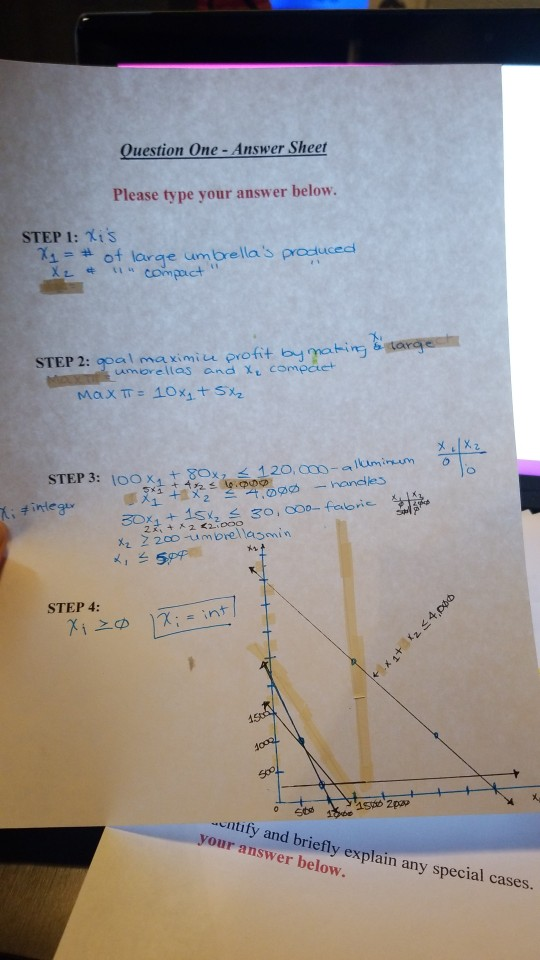 Question One - Answer Sheet
Please type your answer below.
STEP 1: Xi's
X1 = # of large umbrella's produced
X2 # " " compact " "
STEP 2: goal maximize profit by making X1 large
umbrellas and X2 compact
Max π = 10x1 + 5x2
STEP 3: 100x1 + 80x2 ≤ 120,000 - alluminum
5x1 + 4x2 ≤ 6,000
x1 + x2 ≤ 4,000 - handles
Xi ≠ integer
30x1 + 15x2 ≤ 30,000 - fabric
2x1 + x2 ≤ 2,000
x2 ≥ 200 - umbrellas min
x1 ≤ 500
x1 | x2
0
0
x1 | x2
STEP 4:
Xi ≥ 0 Xi = int
x2
x1 + x2 ≤ 4,000
1500
1000
500
0 500 1000 1500 2000 X
entify and briefly explain any special cases.
your answer below.